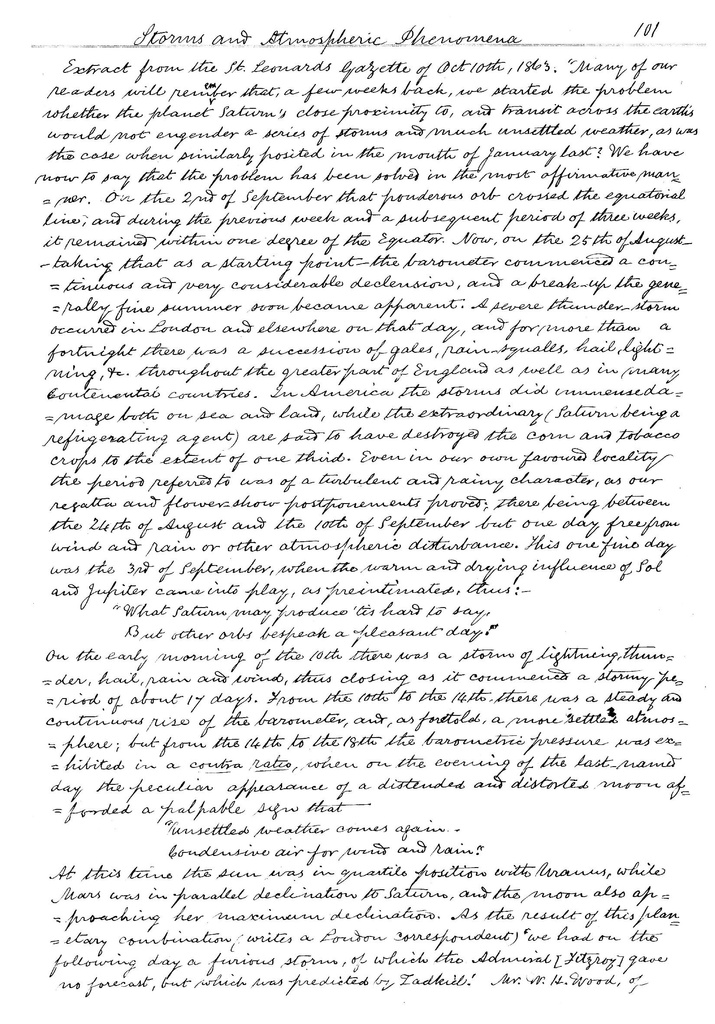 Storms and Atmospheric Phenomena 101
Extract from the St. Leonards Gazette of Oct 10th, 1863. "Many of our
readers will remember that, a few weeks back, we started the problem
whether the planet Saturn's close proximity to, and transit across the earth's
would not engender a series of storms and much unsettled weather, as was
the case when similarly posited in the month of January last? We have
now to say that the problem has been solved in the most affirmative man-
=ner. On the 2nd of September that ponderous orb crossed the equatorial
line; and during the previous week and a subsequent period of three weeks,
it remained within one degree of the Equator. Now, on the 25th of August
-taking that as a starting point-the barometer commenced a con=
=tinuous and very considerable declension, and a break-up the gene=
=rally fine summer soon became apparent. A severe thunder-storm
occurred in London and elsewhere on that day, and for more than a
fortnight there was a succession of gales, rain-squalls, hail, light=
ning, &c. throughout the greater part of England as well as in many
Contenental countries. In America the storms did immense da=
=mage both on sea and land, while the extraordinary (Saturn being a
refrigerating agent) are said to have destroyed the corn and tobacco
crops to the extent of one third. Even in our own favoured locality
the period referred to was of a turbulent and rainy character, as our
regatta and flower-show postponements proved; there being between
the 24th of August and the 10th of September but one day free from
wind and rain or other atmospheric disturbance. This one fine day
was the 3rd of September, when the warm and drying influence of Sol
and Jupiter came into play, as preintimated, thus:-
"What Saturn may produce 'tis hard to say,
But other orbs bespeak a pleasant day."
On the early morning of the 10th there was a storm of lightning, thun-
=der, hail, rain and wind, thus closing as it commenced a stormy pe=
=riod of about 17 days. From the 10th to the 14th there was a steady and
continuous rise of the barometer, and, as foretold, a more settled atmos=
=phere; but from the 14th to the 18th the barometric pressure was ex=
=hibited in a contra ratio, when on the evening of the last-named
day the peculiar appearance of a distended and distorted moon af=
=forded a palpable sign that
"Unsettled weather comes again -
Condensive air for wind and rain."
At this time the sun was in quartile position with Uranus, while
Mars was in parallel declination to Saturn, and the moon also ap=
=proaching her maximum declination. As the result of this plan=
=etary combination (writes a London correspondent) "we had on the
following day a furious storm, of which the Admiral [Fitzroy] gave
no forecast, but which was predicted by Zadkiel." Mr. W. H. Wood, of